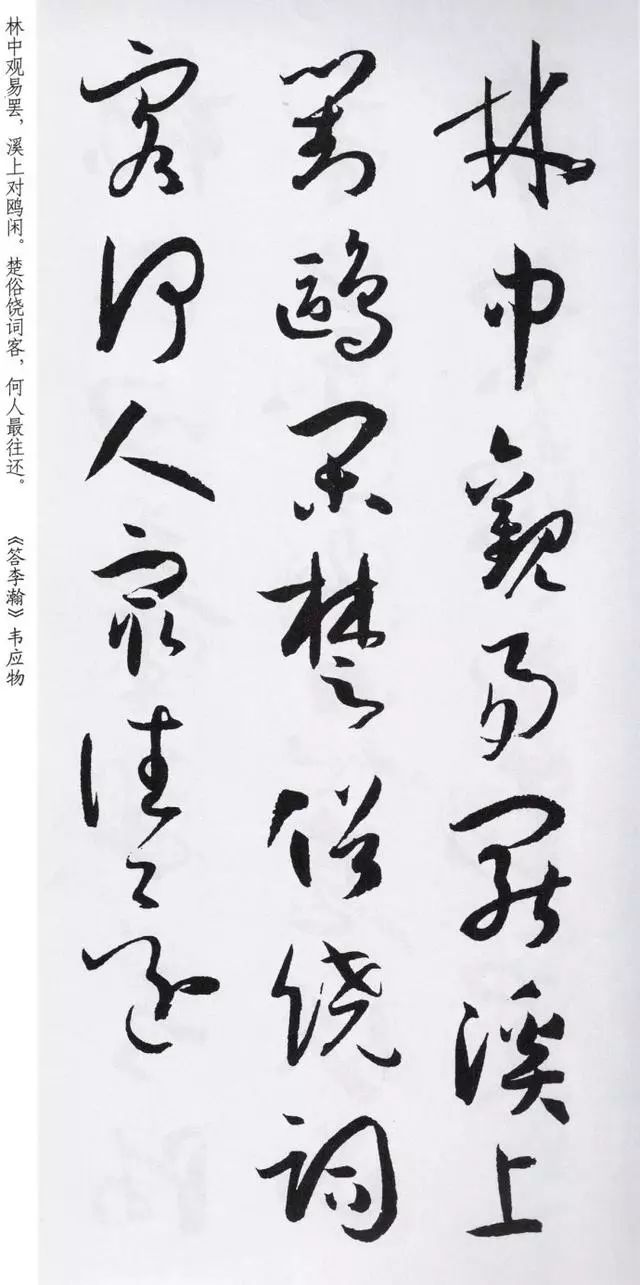 林中觀易罷溪上
對鷗閑楚俗饒詞
客何人最往還
林中观易罢，溪上对鸥闲。楚俗饶词客，何人最往还。 《答李瀚》韦应物